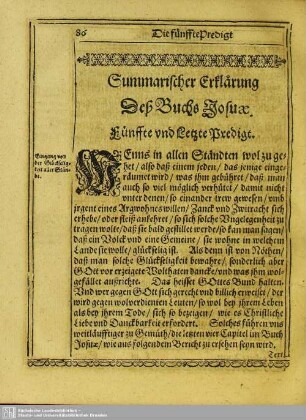 86
Die fünffte Predigt
Summarischer Erklärung
Deß Buchs Josuæ
Fünffte vnd Letzte Predigt.
Eingang von
der Glückselig-
keit aller Stän-
de.
WEnns in allen Ständten wol zu ge-
het / also daß einem jeden / das jenige einge-
räumet wird / was ihm gebühret / daß man
auch so viel möglich verhütet / damit nicht
vnter denen / so einander trew gewesen / vmb
jrgent eines Argwohns willen / Zanck vnd Zwitracht sich
erhebe / oder streit anfehet / so sich solche Vngelegenheit zu
tragen wolte / daß sie bald gestillet werde / so kan man sagen /
daß ein Volck vnd eine Gemeine / sie wohne in welchem
Lande sie wolle / glückselig ist. Als denn ist von Nöthen /
daß man solche Glückseligkeit bewahre / sonderlich aber
GOtt vor erzeigete Wolthaten dancke / vnd was ihm wol-
gefället außrichte. Das heisset GOttes Bund halten.
Vnd wer gegen GOtt sich gerecht vnd billich erweiset / der
wird gegen wolverdienten Leuten / so wol bey ihrem Leben
als bey ihrem Tode / sich so bezeigen / wie es Christliche
Liebe vnd Danckbarkeit erfodert. Solches führen vns
weitläufftiger zu Gemüth / die letzten vier Capitel im Buch
Josuæ / wie aus folgendem Bericht zu ersehen seyn wird.
Text